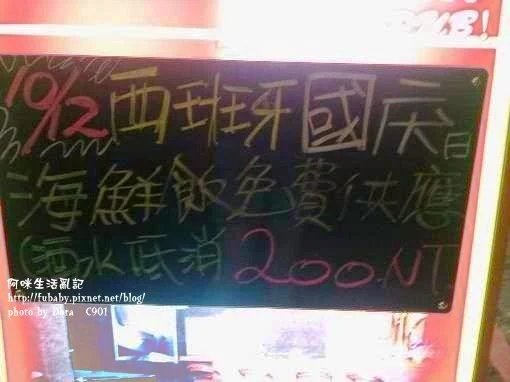 UB!
10/12 西班牙國庆日
海鮮飯免費供應
(酒水低消 200.NT
阿咪生活亂記
http://fubaby.pixnet.net/blog/
photo by Dora C901